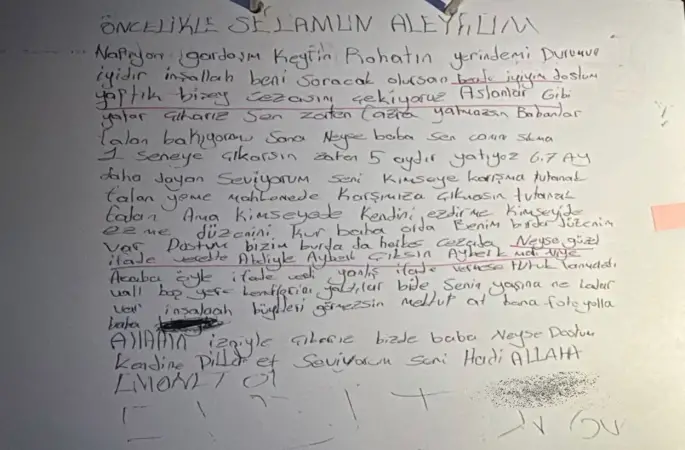 ÖNCELİKLE SELAMUN ALEYKÜM
Napıyon gardaşım Keyfin Rahatın yerindemi Durumun
iyidir inşallah beni soracak olursan bende iyiyim dostum
yaptık bizey cezasını çekiyoruz Aslanlar Gibi
yatar çıkarız sen zaten fazla yatmazsın Babanlar
falan bakıyormu sana Neyse baba sen canını sıkma
1 seneye çıkarsın zaten 5 aydır yatıyoz 6.7 AY
daha dayan Seviyorum seni kimseye karışma tutanak
falan yeme mahkemede karşımıza çıkmasın tutanak
falan Ama kimseyede kendini ezdirme kimseyide
ezme düzenini kur baba orda Benim burda düzenim
var Dostum bizim burda da herkes cezada Neyse güzel
ifade verekte Atakiyle çıksın diye
Acaba öyle ifade verdi yanlış ifade vermese tutuklanmazdı
vall boş yere bide Senin yaşına ne kadar
var inşalaah görmezsin mektup at bana foto yolla
baba
ALLAHIN izniyle çıkarız bizde baba Neyse Dostum
kendine Dikket et Seviyorum seni Hadi ALLAHA
EMANET OL